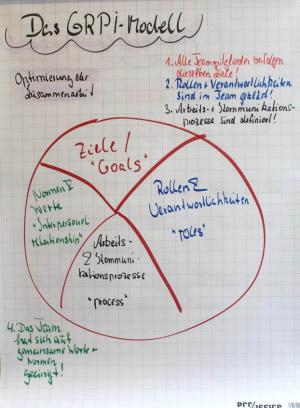 Das GRPI-Modell
Optimierung der
Zusammenarbeit
1. Alle Teammitglieder verfolgen
dieselben Ziele!
2. Rollen + Verantwortlichkeiten
sind im Team geklärt!
3. Arbeits- + Kommunikations-
prozesse sind definiert!
Ziele /
"Goals"
Normen &
Werte
"Interpersonal
Relationship"
Rollen &
Verantwortlichkeiten
"roles"
Arbeits-
& Kommuni-
kationsprozesse
"process"
4. Das Team
hat sich auf
gemeinsame Werte +
Normen
geeinigt!